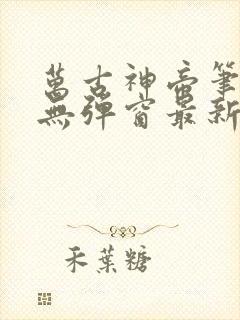 萬古神帝筆
無彈窗最新
禾葉糖